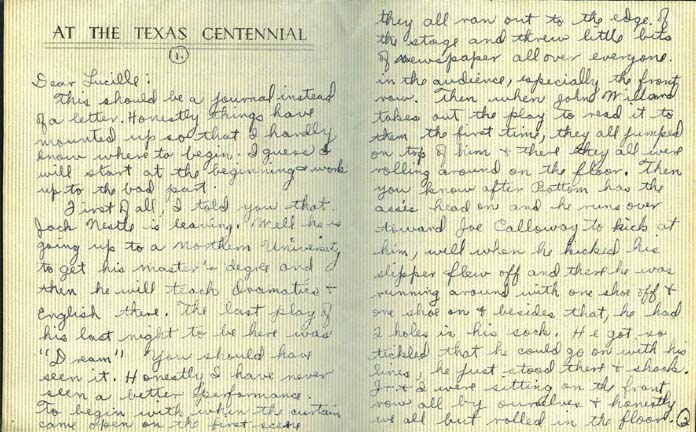 AT THE TEXAS CENTENNIAL
1.
Dear Lucille:
This should be a journal instead
of a letter. Honestly things have
mounted up so that I hardly
know where to begin. I guess I
will start at the beginning & work
up to the bad part.
First of all, I told you that
Jack Nestle is leaving. Well he is
going up to a Northern University
to get his master's degree and
then he will teach Dramatics &
English there. The last play of
his last night to be here was
"Dream" You should have
seen it. Honestly I have never
seen a better performance.
To begin with when the curtain
came open on the first scene
they all ran out to the edge of
the stage and threw little bits
of newspaper all over everyone
in the audience, especially the front
row. Then when John Willard
takes out the play to read it to
them the first time, they all jumped
on top of him & there they all were
rolling around on the floor. Then
you know after Bottom has the
ass's head on and he runs over
toward Joe Calloway to kick at
him, well when he kicked his
slipper flew off and there he was
running around with one shoe off &
one shoe on & besides that, he had
2 holes in his sock. He got so
tickled that he could go on with his
lines, he just stood there & shook.
Jr. & I were sitting on the front
row all by ourselves & honestly
we all but rolled in the floor.
2